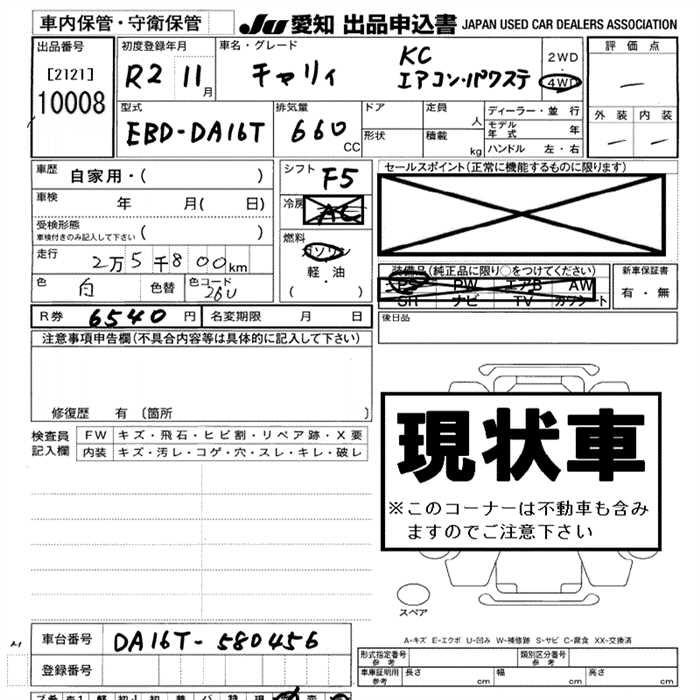 車内保管・守衛保管 JU 愛知 出品申込書 JAPAN USED CAR DEALERS ASSOCIATION
出品番号 初度登録年月 車名・グレード KC 2WD 評価点
[2121] R2 11月 キャリイ エアコン・パワステ ・4WD —
10008 外装 内装
型式 排気量 ドア 定員 人 ディーラー・並行
EBD-DA16T 660CC 形状 積載 kg モデル年式 年
ハンドル 左・右 — —
車歴 自家用・( ) シフト F5 セールスポイント(正常に機能するものに限ります)
車検 年 月( 日) 冷房 AC
受検形態 ( )
車検付きのみ記入して下さい
燃料 ガソリン
走行 2万5千800km 軽・油
・
( )
装備品(純正品に限り○をつけてください) 新車保証書
PS PW エアB AW 有・無
SR ナビ TV カワシート
色 白 色替 色コード 26U
後日品
R券 6540円 名変期限 月 日
注意事項申告欄(不具合内容等は具体的に記入して下さい)
修復歴 有 〔箇所 〕
現状車
※このコーナーは不動車も含み
ますのでご注意下さい
検査員 FW キズ・飛石・ヒビ割・リペア跡・X要
記入欄 内装 キズ・汚レ・コゲ・穴・スレ・キレ・破レ
スペア
A-キズ E-エクボ U-凹み W-補修跡 S-サビ C-腐食 XX-交換済
車台番号 DA16T-580456
登録番号
形式指定番号 参考 類別区分番号 参考
車庫証明用 参考 長さ cm 幅 cm 高さ cm